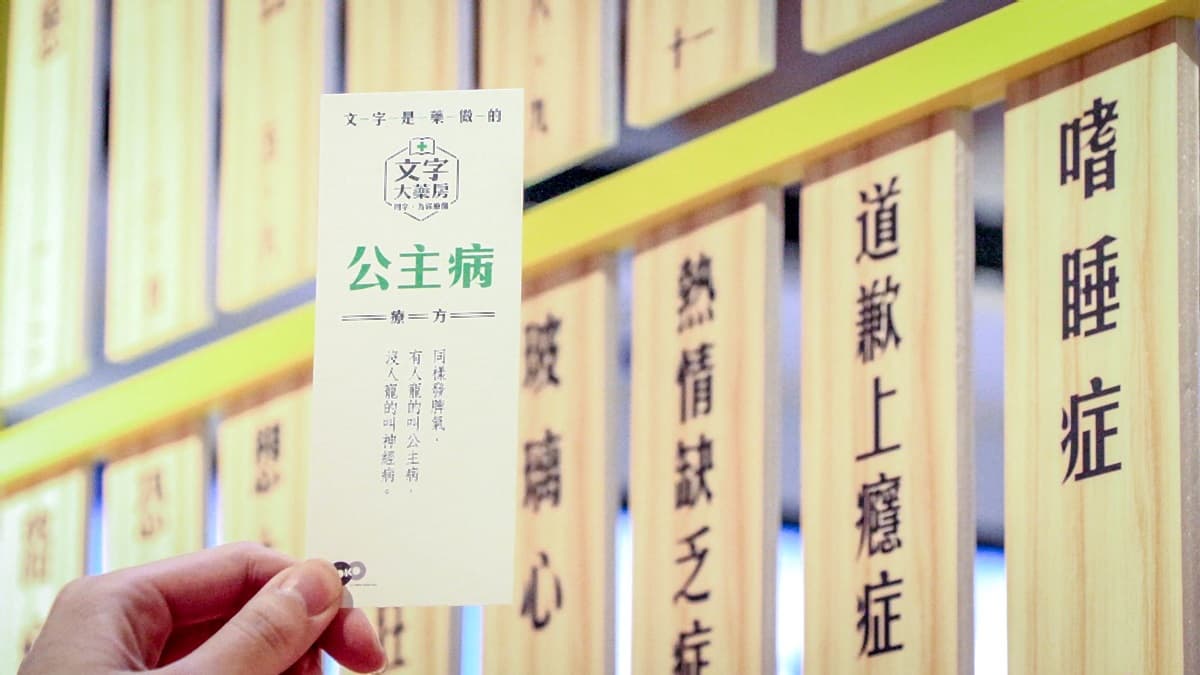 文字是藥做的
文字
大藥房
用字,為你療傷
公主病
療方
同樣發脾氣,
有人寵的叫公主病,
沒人寵的叫神經病。
嗜睡症
道歉上癮症
熱情缺乏症
玻璃心